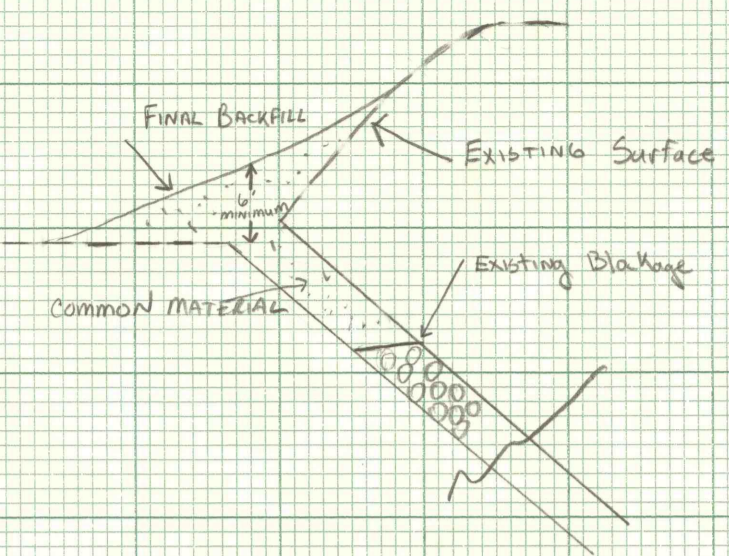 FINAL BACKFILL
EXISTING Surface
6'
MINIMUM
EXISTING Blokage
COMMON MATERIAL